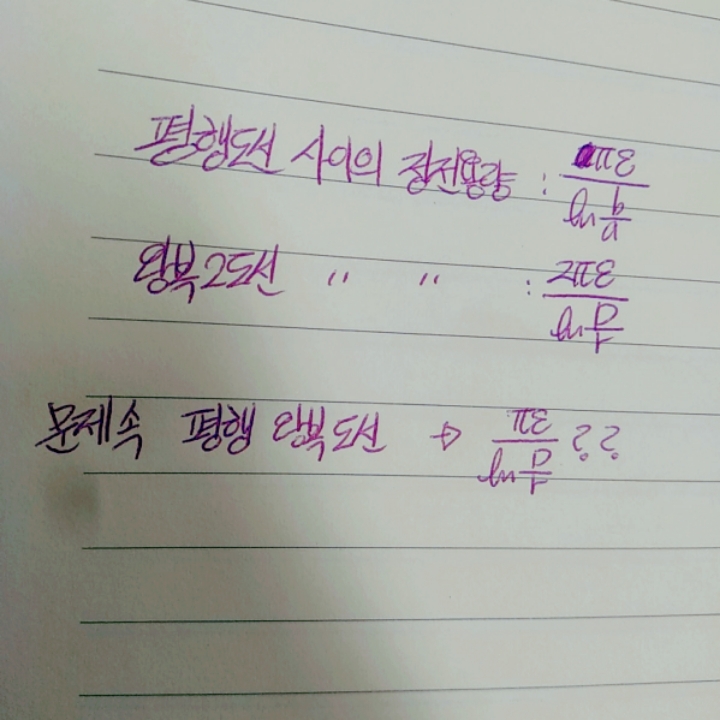 평행도선 사이의 정전용량 : πε / ln b/a
왕복2도선 " " : 2πε / ln d/r
문제속 평행 왕복 도선 → πε / ln d/r ??